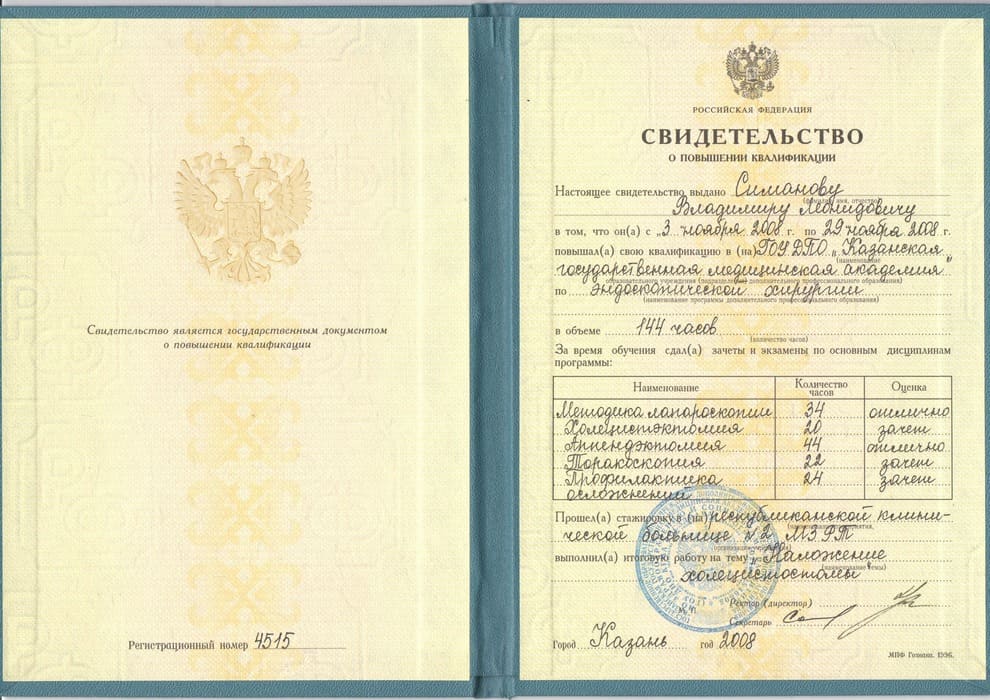 Свидетельство является государственным документом
о повышении квалификации
Регистрационный номер 4515
РОССИЙСКАЯ ФЕДЕРАЦИЯ
СВИДЕТЕЛЬСТВО
О ПОВЫШЕНИИ КВАЛИФИКАЦИИ
Настоящее свидетельство выдано Симанову
(фамилия, имя, отчество)
Владимиру Леонидовичу
в том, что он(а) с „3 ноября 2008 г. по 29 ноября 2008 г.
повышал(а) свою квалификацию в (на) ГОУ ДПО „Казанская
(наименование
государственная медицинская академия"
образовательного учреждения (подразделения) дополнительного профессионального образования)
по эндоскопической хирургии
(наименование программы дополнительного профессионального образования)
в объеме 144 часов
(количество часов)
За время обучения сдал(а) зачеты и экзамены по основным дисциплинам
программы:
Наименование Количество часов Оценка
Методика лапароскопии 34 отлично
Холецистэктомия 20 зачет
Аппендэктомия 44 отлично
Торакоскопия 22 зачет
Профилактика 24 зачет
осложнений
Прошел(а) стажировку в (на) республиканской клини-
ческой больнице №2 МЗ РТ
выполнил(а) итоговую работу на тему „Наложение
(наименование темы)
холецистостомы"
Ректор (директор)
М.П.
Секретарь
Город Казань год 2008
МПФ Гознака. 1996.